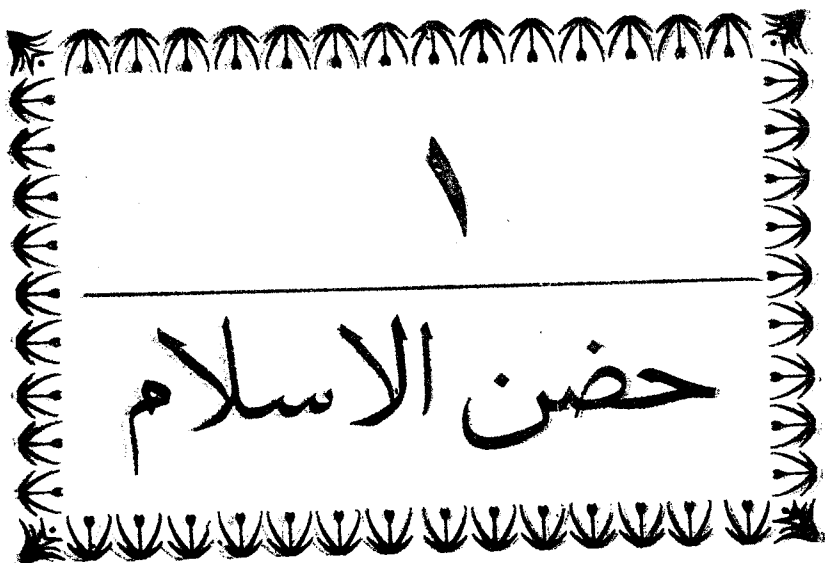 ١
حضن الاسلام